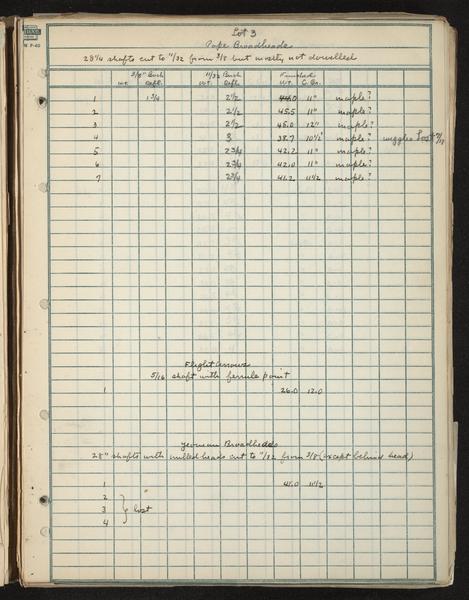 Lot 3
Pope Broadheads
28 1/4 shafts cut to 11/32 from 3/8 but mostly not dowelled
3/8" Birch 11/32 Birch Finished
wt. Defl. wt. Defl. Wt. C. Gr.
1 1 3/4 2 1/2 44.0 11" maple?
2 2 1/2 45.5 11" maple?
3 2 1/2 45.0 12" maple?
4 3 38.7 10 1/2 maple? wiggles Lost
5 2 3/4 42.2 11" maple?
6 2 3/4 42.0 11" maple?
7 2 3/4 41.2 11 1/2 maple?
Flight Arrows
5/16 shaft with ferrule point
1 26.0 12.0
Yeoman Broadheads
28" shafts with milled heads cut to 11/32 from 3/8 (except behind head)
1 41.0 11 1/2
2
3 } lost
4